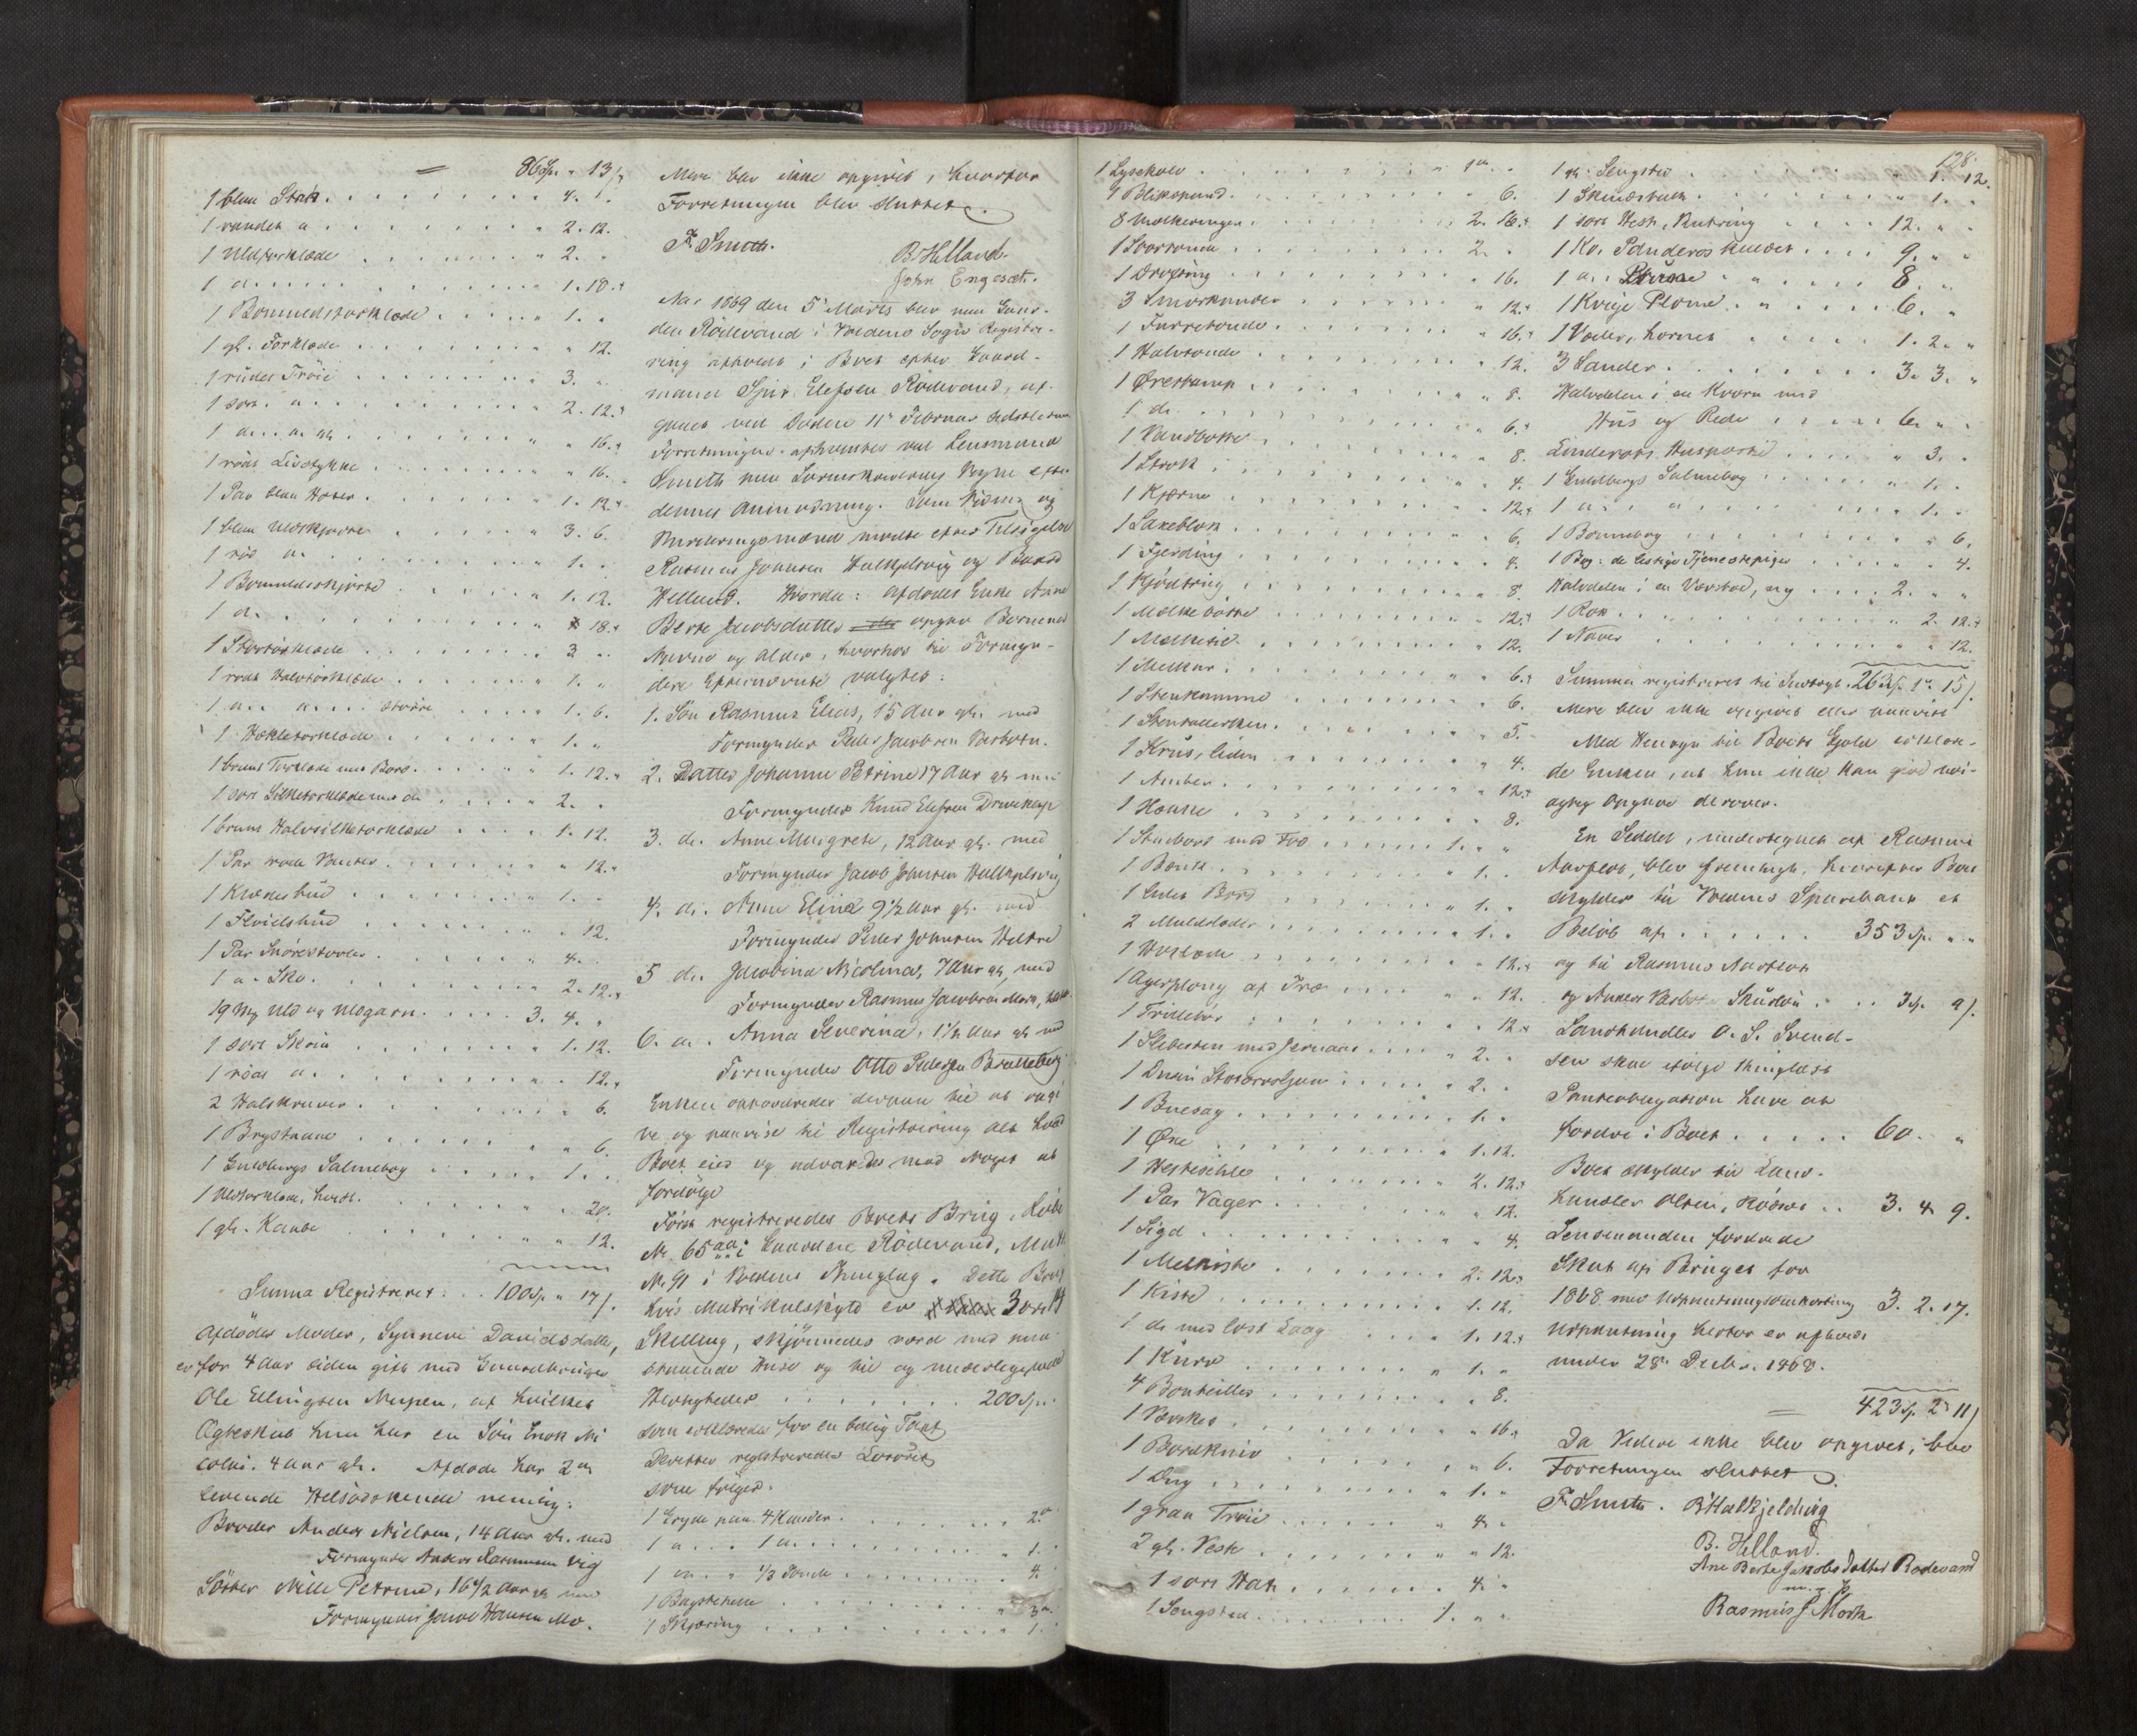 = 86 Sp. " 13 ſ
1 blaa Stak . . . 4. "
1 randet do . . . 2. 12.
1 Uldforklæde . . . 2. "
1 do . . . 1. 18.
1 Bommuldsforklæde . . . 1. "
1 gl. Forklæde . . . " 12.
1 rudet Tröie . . . 3. "
1 sort do . . . 2. 12.
1 do . . . gl. . . . " 16.
1 rödt Livstykke . . . " 16.
1 Par blaa Hoser . . . 1. 12.
1 blaa Uldskjorte . . . 3. 6.
1 do . . . 1. "
1 Bomuldsskjorte . . . 1. 12.
1 do . . . " 18.
1 Stortörklæde . . . 3 "
1 rödt Halstörklæde . . . 1. "
1 do do större . . . 1. 6.
1 Hækletörklæde . . . 1. "
1 brunt Törklæde med Bord . . . 1. 12.
1 sort Silketörklæde med do . . . 2. "
1 brunt Halvsilketörklæde . . . 1. 12.
1 Par röde Vanter . . . " 12.
1 Klædeshue . . . 1. "
1 Flöielshue . . . " 12.
1 Par Snörestövler . . . 4. "
1 do Sko . . . 2. 12.
19 Mrk Uld og Uldgarn . . . 3. 4. "
1 sort Tröie . . . 1. 12.
1 röd do . . . " 12.
2 Halskraver . . . " 6.
1 Brystdug . . . " 6.
1 Guldbergs Salmebog . . . 1. "
1 Uldtörklæde, hvidt . . . " 20.
1 gl. Kaabe . . . " 12.
Summa Registreret . . . 100 Sp. " 17 ſ.
Afdödes Moder, Synneve Davidsdatter,
er for 4 Aar siden gift med Gaardbruger
Ole Ellingsen Myren, af hvilket
Ægteskab hun har en Sön Enok Ni
colai. 4 Aar gl. Afdöde har 2de
levende Helsödskende nemlig:
Broder Anders Nielsen, 14 Aar gl. med
Formynder Anders Rasmussen Vig
Söster Nille Petrine, 16 1/2 Aar gl. med
Formynder Jacob Hansen Mo.
Mere blev ikke opgivet, hvorfor
Forretningen blev sluttet.
F. Smith.
B. Helland.
John Engeset.
Aar 1869 den 5te Marts blev paa Gaar-
den Rödevand i Voldens Sogn Registre-
ring afholdt i Boet efter Gaard-
mand Sjur Elefsen Rödevand, af-
gaaet ved Döden 11te Februar sidstleden
Forretningen afholdtes ved Lensmand
Smith paa Sorenskriverens Vegne efter
dennes Anmodning. Som Vidner og
Vurderingsmænd mødte efter Tilsigelse
Rasmus Johnsen Halkjelsvig og Baard
Helland. Hvorda: Afdödes Enke Anne
Berte Jacobsdatter opgav Börnenes
Nævne og Alder, hvorhos til Formyn-
dere Efternævnte valgtes:
1. Sön Rasmus Elias, 15 Aar gl. med
Formynder Peder Jacobsen Varbotn.
2. Datter Johanne Petrine 17 Aar gl. med
Formynder Knud Elefsen Dravlaup
3. do. Anne Margrete, 12 Aar gl. med
Formynder Jacob Johnsen Halkjelsvig
4. do. Anne Elina 9 1/2 Aar gl. med
Formynder Peder Johnsen
5 do. Jacobina Nicolina, 7 Aar gl. med
Formynder Rasmus Jacobsen Mork,
6. do. Anna Severina, 1 1/2 Aar gl. med
Formynder Otto Pedersen Bratteberg
Enken opfordredes derpaa til at opgi
ve og paavise til Registrering Alt hvad
Boet eier og advaredes mod Noget at
fordölge
Först registreredes Boets Brug, Löbe
No 65 aa i Gaarden Rödevand, Mat
No 91 i Voldens Thinglag. Dette Brug
hvis Matrikulskyld er 3 ort 14
Skilling, skjönnedes værd med paa-
staaende Huse og til og underliggende
Herligheder . . . 200 Sp.
som erklæredes for en billig Taxt
Derefter registreredes Lösöret
som fölger.
1 Gryde paa 4 Kander . . . 2 ort
1 do . . . 1 do . . . 1.
1 do . . 1/3 Tönde . . . 4.
1 Bagstehelle . . . 3 ort
1 Skjæring . . . 1.
128.
1 Lysekole . . . 1 ort "
1 Blikspand . . . " 6.
8 Melkeringer . . . 2. 16.
1 Stortönde . . . 2. "
1 Dragöring . . . " 16.
3 Smörkander . . . " 12.
1 Furretönde . . . " 16.
1 Halvtönde . . . " 12.
1 Örestamp . . . " 8.
1 do . . . " 6.
1 Vandbötte . . . " 8.
1 Strok . . . " 4.
1 Kjærne . . . " 12.
1 Lakeblok . . . " 6.
1 Fjerding . . . " 4.
1 Kjödtrug . . . " 8.
1 Melkebötte . . . " 12.
1 Melkesil . . . " 12.
1 Melkar . . . " 6.
1 Stenkumme . . . " 6.
1 Stentallerken . . . " 5.
1 Krus, liden . . . " 4.
1 Amber . . . " 12.
1 Hanke . . . " 8.
1 Stuebord med Fod . . . 1. "
1 Bænk . . . 1. "
1 lidet Bord . . . 1. "
2 Muldslæder . . . 1. "
1 Vogslæde . . . " 12.
1 Agerplog af Træ . . . " 12.
1 Trillebör . . . " 12.
1 Slibesten med Jernaas . . . 2. "
1 . . . 2. "
1 Buesag . . . 1. "
1 Öxe . . . 1. 12.
1 Hestesehle . . . 2. 12.
1 Par Vager . . . " 12.
1 Sigd . . . " 4.
1 Melkiste . . . 2. 12.
1 Kiste . . . 1. 12.
1 do med löst Laag . . . 1. 12.
1 Kurv . . . 1. "
4 Bouteiller . . . " 8.
1 Væske . . . " 16.
1 Bordkniv . . . " 6.
1 Dug . . . 1. "
1 graa Tröie . . . 4. "
2 gl. Vest . . . " 12.
1 sort Hat . . . 4. "
1 Sengsted . . . 1. " "
1 gl. Sengsted . . . 1. 12.
1 Skindstak . . . 1. "
1 sort Hest, Rubring . . . 12. " "
1 Ko, Panderos kaldet . . . 9. " "
1 do . . . 8. " "
1 Kvige Plome . . . 6. "
1 Væder, hornet . . . 1. 2. "
3 Sauder . . . 3. 3. "
Halvdelen i en Kvern med
Hus og Rede . . . 6. " "
Linderots Huspostil . . . " 3. "
1 Guldbergs Salmebog . . . 1. "
1 do . . . 1. "
1 Bönnebog . . . " 6.
1 Bog: de lystige Tjenestepiger . . . " 4.
Halvdelen i en Vævstol, ny . . . 2. " "
1 Rok . . . 2. 12.
1 Naver . . . " 12.
Summa registreret til Indtægt 263 Sp. 1 ort 15 ſ.
Mere blev ikke opgivet eller paavist
Med Hensyn til Boets Gjeld erklære-
de Enken, at hun ikke kan give nöi-
agtig Opgave derover.
En Seddel, undertegnet af Rasmus
Aarflot, blev fremlagt, hvorefter Boet
skylder til Voldens Sparebank et
Belöb af . . . 353 Sp. " "
og til Rasmus Aarflot
og Anders Varbotn Skudsön . . . 3 Sp. 9 ſ.
Landhandler O. S. Svend-
sen skal ifölge thinglæst
Panteobligation have at
fordre i Boet . . . 60. "
Boet skylder til Land-
handler Olsen, Rödsæt . . 3. 4. 9.
Lensmanden fordrede
Skat af Bruget for
1868 med Udpantningsomkostning 3. 2. 17.
Udpantning herfor er afholdt
under 28de Decbr. 1868.
= 423 Sp. 2 ort 11 ſ
Da Videre ikke blev opgivet, blev
Forretningen sluttet.
F. Smith. R. Halkjelsvig
B. Helland.
Ane Berte Jakobsdatter Rødevand
m. p. P.
Rasmus J. Mork